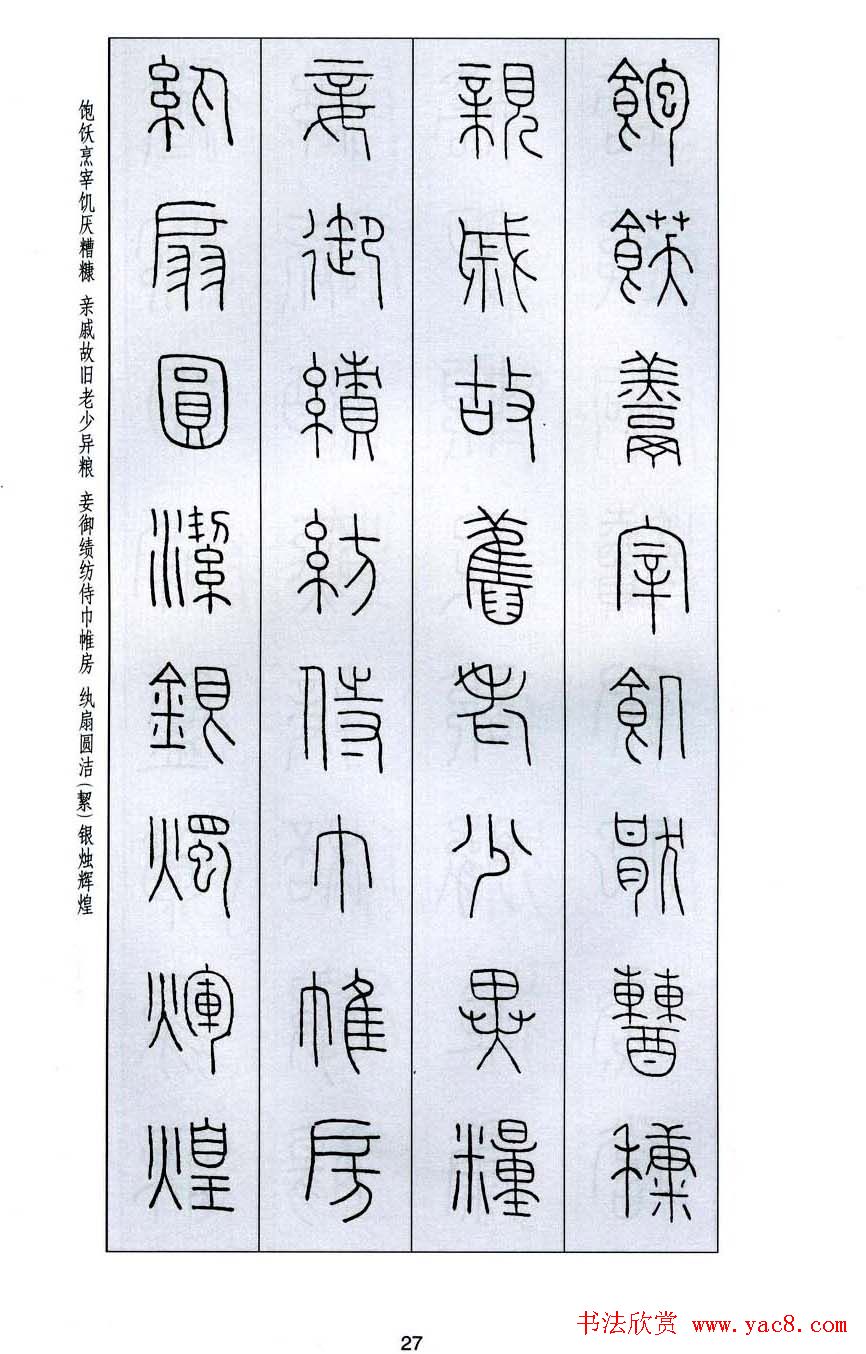 飽飫烹宰飢厭糟糠
親戚故舊老少異糧
妾御績紡侍巾帷房
紈扇圓潔銀燭煇煌
饱饫烹宰饥厌糟糠 亲戚故旧老少异粮 妾御绩纺侍巾帷房 纨扇圆洁(絜)银烛辉煌
27
书法欣赏 www.yac8.com